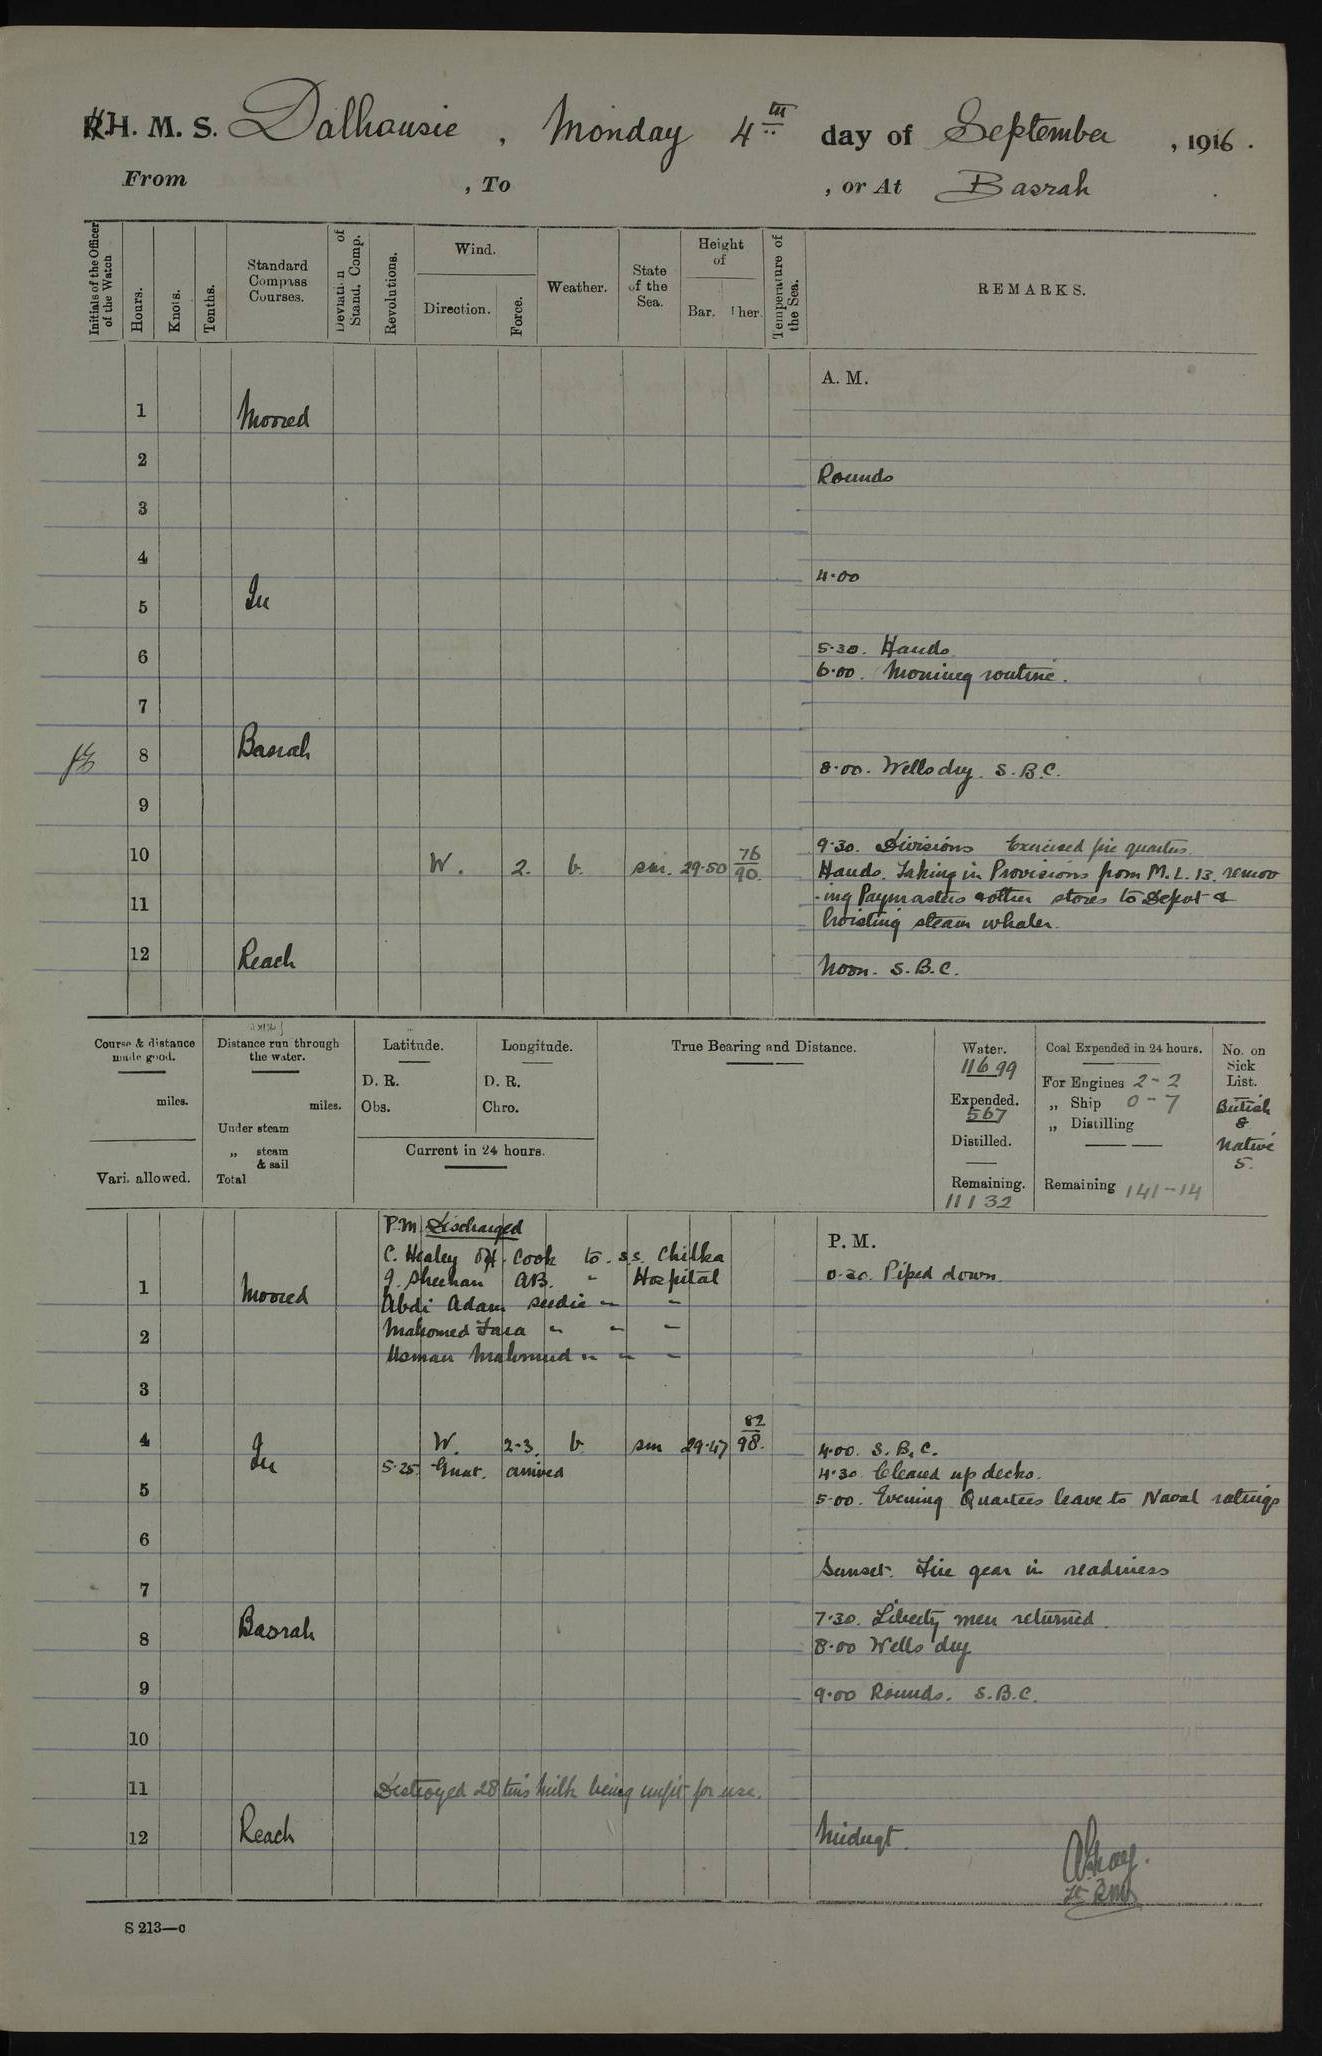 H. M. S. Dalhousie, Monday 4th day of September, 1916.
From , To , or At Basrah
Initials of the Officer of the Watch
Hours.
Knots.
Tenths.
Standard Compass Courses.
Deviation of Stand. Comp.
Revolutions.
Wind.
Direction.
Force.
Weather.
State of the Sea.
Height of
Bar.
Ther.
Temperature of the Sea.
REMARKS.
A. M.
1 Moored
2 Rounds
3
4
4.00
5 In
5.30. Hands
6
6.00. Morning routine.
7
8 Basrah
8.00. Wells dry. S.B.C.
9
9.30. Divisions Exercised fire quarters.
10 W. 2. b. sm. 29.50 76/90. Hands. Taking in Provisions from M.L. 13. remov
11 -ing Paymasters & other stores to Depot &
hoisting steam whaler.
12 Reach
Noon. S.B.C.
Course & distance made good.
miles.
Vari. allowed.
Distance run through the water.
miles.
Under steam
„ steam & sail
Total
Latitude.
D. R.
Obs.
Longitude.
D. R.
Chro.
Current in 24 hours.
True Bearing and Distance.
Water.
11699
Expended.
567
Distilled.
Remaining.
11132
Coal Expended in 24 hours.
For Engines 2-2
„ Ship 0-7
„ Distilling
Remaining 141-14
No. on Sick List.
British
8
Native
5.
P.M. Discharged
C. Healey Off. Cook to s.s. Chilka
J. Sheehan AB. " Hospital
Abdi Adam seedie " "
Mahomed Fara " " "
Usman Mahmud " " "
P. M.
0.30. Piped down.
1 Moored
2
3
4 In W. 2-3. b. sm 29.47 82/98. 4.00. S.B.C.
5.25. Gnat. arrived
4.30. Cleared up decks.
5
5.00. Evening Quarters leave to Naval ratings
6
Sunset. Fire gear in readiness
7
7.30. Liberty men returned.
8 Basrah
8.00 Wells dry
9
9.00 Rounds. S.B.C.
10
11 Destroyed 28 tins milk being unfit for use.
12 Reach
Midngt.
Lt. RIM
S 213—c